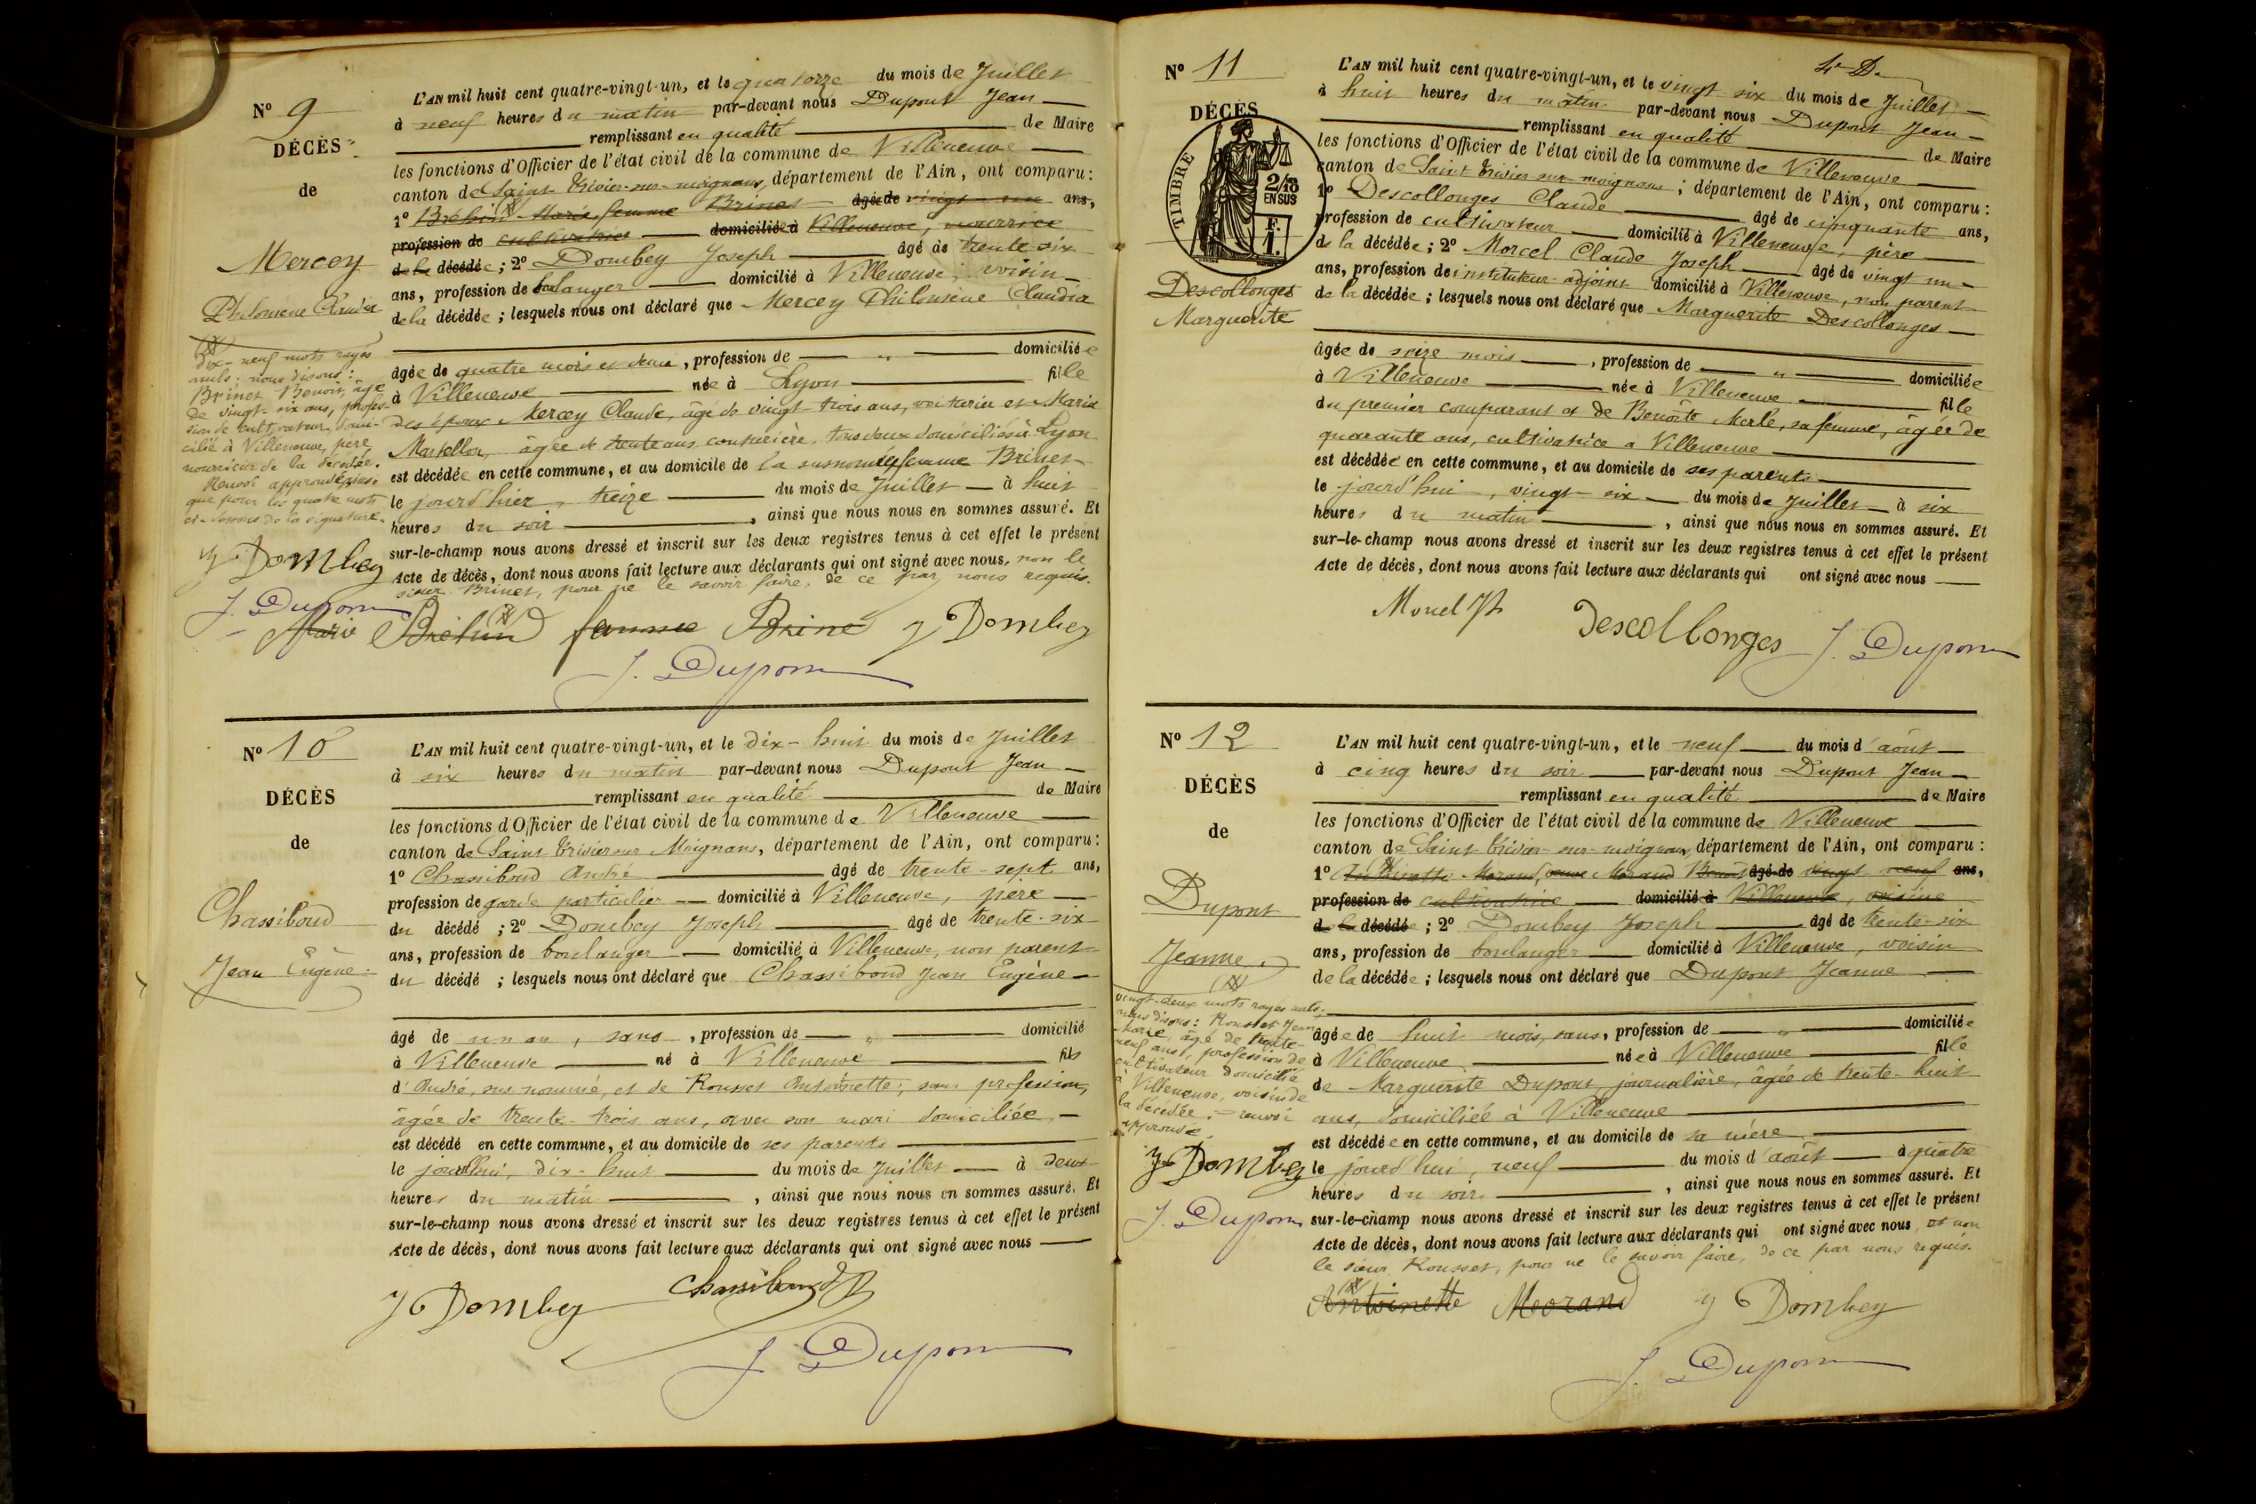 N° 9
DÉCÈS
de
Mercey
Philomène Claudia
L'AN mil huit cent quatre-vingt-un, et le quatorze du mois de Juillet
à neuf heures du matin par-devant nous Dupont Jean
remplissant en qualité de Maire
les fonctions d'Officier de l'état civil de la commune de Villeneuve
canton de Saint Trivier-sur-moignans, département de l'Ain, ont comparu :
1° Bréhin Marie femme Brinet âgé de vingt-six ans,
profession de cultivatrice domicilié à Villeneuve, nourrice
de la décédée ; 2° Dombey Joseph âgé de trente-six
ans, profession de boulanger domicilié à Villeneuve, voisin
de la décédée ; lesquels nous ont déclaré que Mercey Philomène Claudia
âgée de quatre mois et demi, profession de " domiciliée
à Villeneuve née à Lyon fille
des époux Mercey Claude, âgé de vingt-trois ans, voiturier et Marie
âgée de trente ans couturière, tous deux domiciliés à Lyon
est décédée en cette commune, et au domicile de la susnommée femme Brinet
le jourd'hier, treize du mois de Juillet à huit
heures du soir, ainsi que nous nous en sommes assuré. Et
sur-le-champ nous avons dressé et inscrit sur les deux registres tenus à cet effet le présent
Acte de décès, dont nous avons fait lecture aux déclarants qui ont signé avec nous, non le
sieur Brinet, pour ne le savoir faire, de ce par nous requis.
dix-neuf mots rayés
nuls ; nous disons :
Brinet Benoit, âgé
de vingt-six ans, profes-
sion de cultivateur, domi-
cilié à Villeneuve, père
nourricier de la décédée.
Renvoi approuvé, ainsi
que pour les quatre mots
ci-dessous de la signature.
J Dombey
J. Dupont
Marie Bréhin femme Brinet J Dombey
J. Dupont
N° 10
DÉCÈS
de
Chassiboud
Jean Eugène
L'AN mil huit cent quatre-vingt-un, et le dix-huit du mois de Juillet
à six heures du matin par-devant nous Dupont Jean
remplissant en qualité de Maire
les fonctions d'Officier de l'état civil de la commune de Villeneuve
canton de Saint Trivier sur Moignans, département de l'Ain, ont comparu :
1° Chassiboud André âgé de trente-sept ans,
profession de garde particulier domicilié à Villeneuve, père
du décédé ; 2° Dombey Joseph âgé de trente-six
ans, profession de boulanger domicilié à Villeneuve, non parent
du décédé ; lesquels nous ont déclaré que Chassiboud Jean Eugène
âgé de un an, sans, profession de " domicilié
à Villeneuve né à Villeneuve fils
d'André, sus nommé, et de Rousset Antoinette, sans profession,
âgée de trente-trois ans, avec son mari domiciliée
est décédé en cette commune, et au domicile de ses parents
le jourd'hui, dix-huit du mois de Juillet à deux
heures du matin, ainsi que nous nous en sommes assuré. Et
sur-le-champ nous avons dressé et inscrit sur les deux registres tenus à cet effet le présent
Acte de décès, dont nous avons fait lecture aux déclarants qui ont signé avec nous
J Dombey Chassiboud
J. Dupont
4e D.
N° 11
DÉCÈS
TIMBRE
2/10
EN SUS
F.
1.
Descollonges
Marguerite
L'AN mil huit cent quatre-vingt-un, et le vingt-six du mois de Juillet
à huit heures du matin par-devant nous Dupont Jean
remplissant en qualité de Maire
les fonctions d'Officier de l'état civil de la commune de Villeneuve
canton de Saint Trivier sur moignans ; département de l'Ain, ont comparu :
1° Descollonges Claude âgé de cinquante ans,
profession de cultivateur domicilié à Villeneuve, père
de la décédée ; 2° Morcel Claude Joseph âgé de vingt un
ans, profession de instituteur adjoint domicilié à Villeneuve, non parent
de la décédée ; lesquels nous ont déclaré que Marguerite Descollonges
âgée de seize mois, profession de " domiciliée
à Villeneuve née à Villeneuve fille
du premier comparant et de Benoîte Merle, sa femme, âgée de
quarante ans, cultivatrice à Villeneuve
est décédée en cette commune, et au domicile de ses parents
le jourd'hui, vingt-six du mois de Juillet à six
heures du matin, ainsi que nous nous en sommes assuré. Et
sur-le-champ nous avons dressé et inscrit sur les deux registres tenus à cet effet le présent
Acte de décès, dont nous avons fait lecture aux déclarants qui ont signé avec nous
Morcel Descollonges J. Dupont
N° 12
DÉCÈS
de
Dupont
Jeanne
L'AN mil huit cent quatre-vingt-un, et le neuf du mois d'août
à cinq heures du soir par-devant nous Dupont Jean
remplissant en qualité de Maire
les fonctions d'Officier de l'état civil de la commune de Villeneuve
canton de Saint Trivier-sur-moignans, département de l'Ain, ont comparu :
1° Antoinette Morand, Morand Benoit âgé de vingt-neuf ans,
profession de cultivatrice domicilié à Villeneuve, voisine
de la décédée ; 2° Dombey Joseph âgé de trente-six
ans, profession de boulanger domicilié à Villeneuve, voisin
de la décédée ; lesquels nous ont déclaré que Dupont Jeanne
âgée de huit mois, sans, profession de " domiciliée
à Villeneuve née à Villeneuve fille
de Marguerite Dupont, journalière, âgée de trente-huit
ans, domiciliée à Villeneuve
est décédée en cette commune, et au domicile de sa mère
le jourd'hui, neuf du mois d'août à quatre
heures du soir, ainsi que nous nous en sommes assuré. Et
sur-le-champ nous avons dressé et inscrit sur les deux registres tenus à cet effet le présent
Acte de décès, dont nous avons fait lecture aux déclarants qui ont signé avec nous, et non
le sieur Rousset, pour ne le savoir faire, de ce par nous requis.
vingt-deux mots rayés nuls,
nous disons : Rousset Jean
Marie, âgé de trente-
neuf ans, profession de
cultivateur domicilié
à Villeneuve, voisin de
la décédée. renvoi
approuvé
J Dombey
J. Dupont
Antoinette Meorand J Dombey
J. Dupont